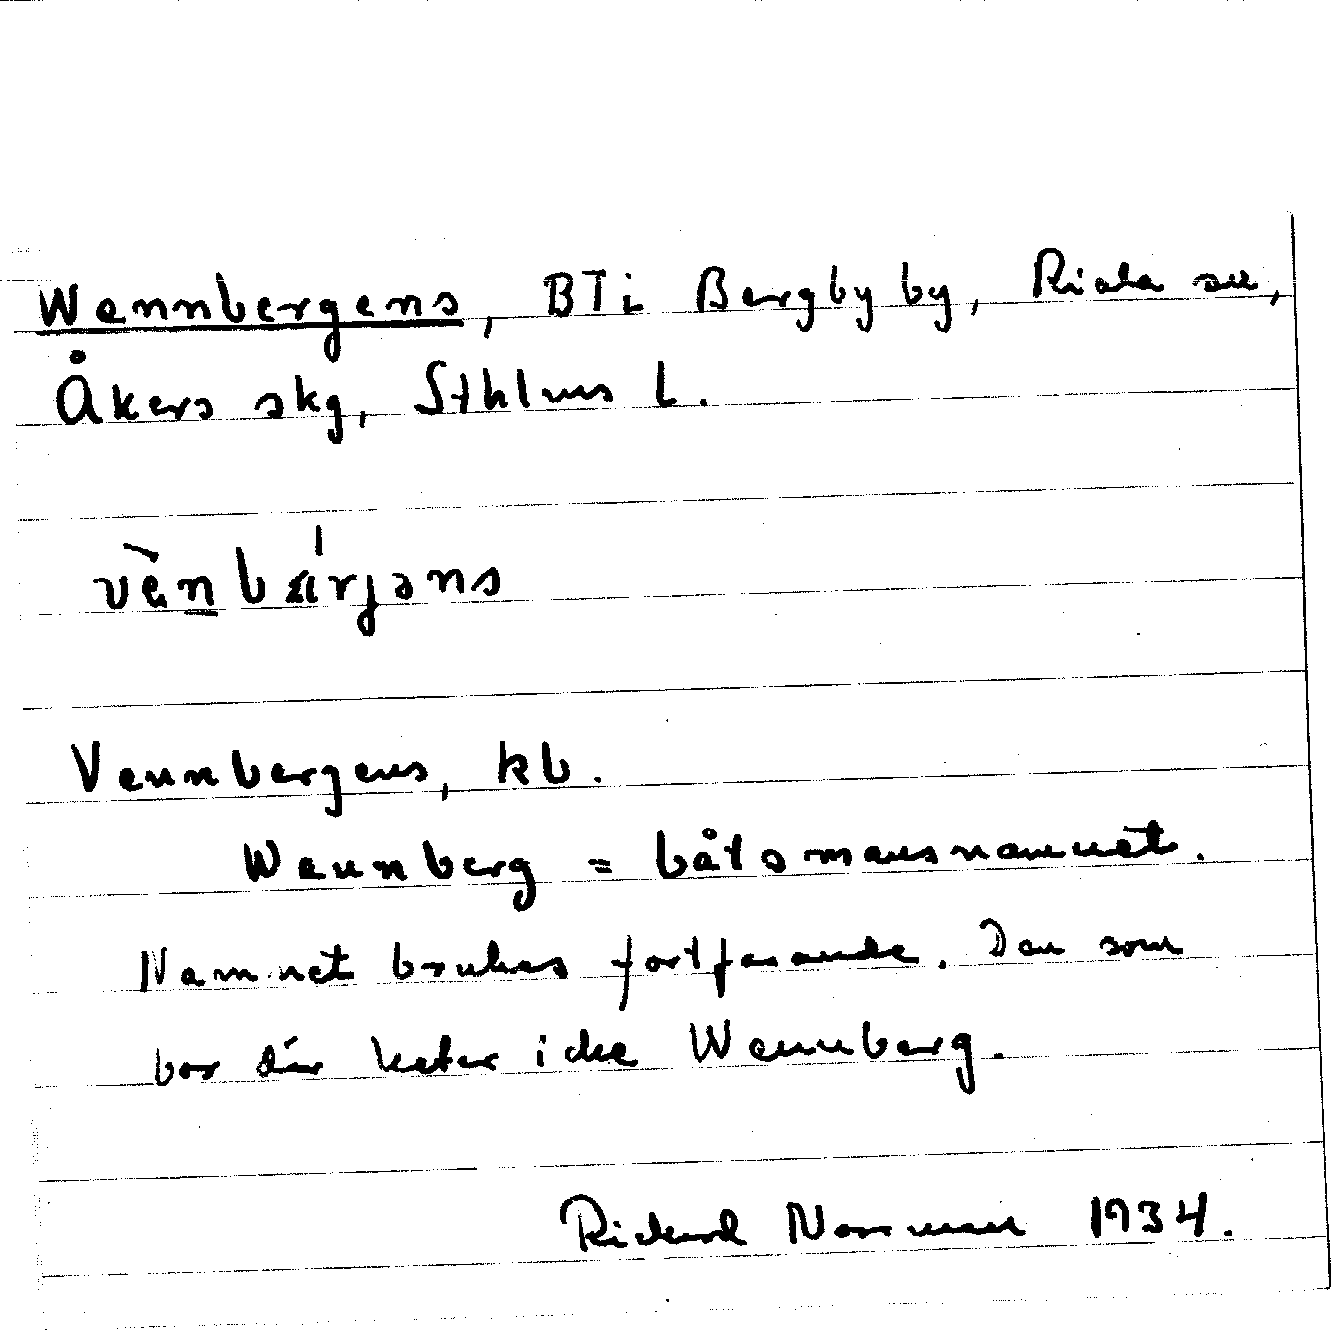 Wennbergens, BTi Bergby by, Riala sn,
Åkers skg, Sthlms L.
vènbärjəns
Vennbergens, kb.
Wennberg = båtsmansnamnet.
Namnet brukas fortfarande. Den som
bor där heter icke Wennberg.
Rickard Norrman 1934.